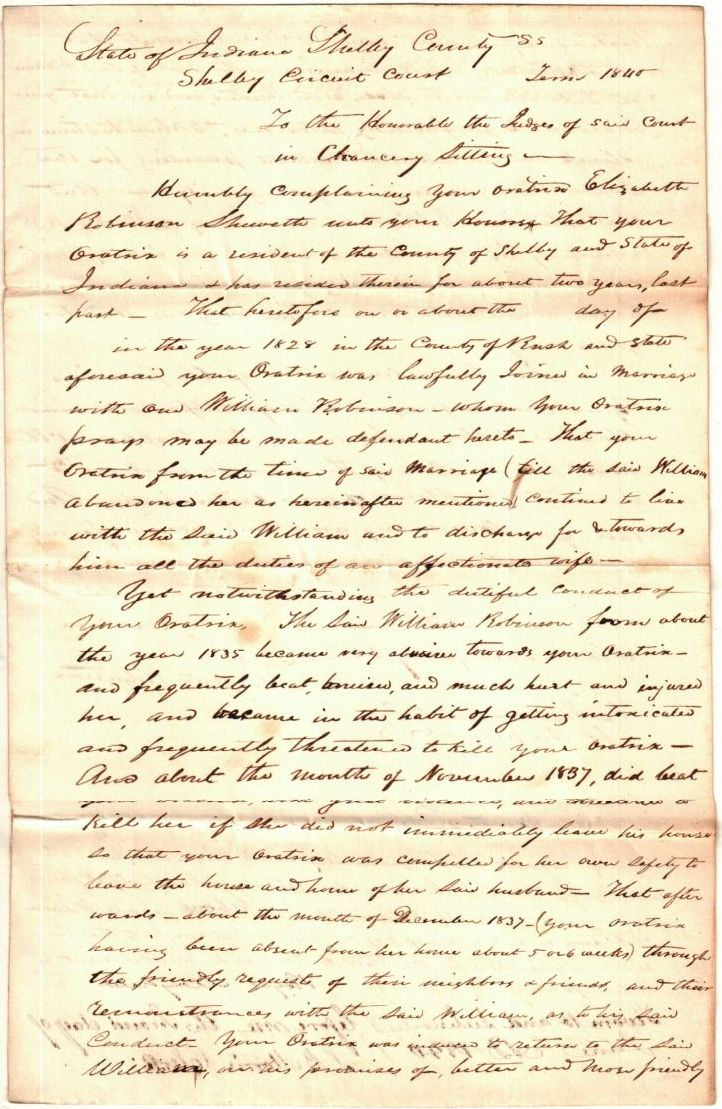 State of Indiana Shelby County Ss
Shelby Circuit Court Term 1840
To the Honorable the Judges of said Court
in Chancery Sitting —
Humbly Complaining Your Oratrix Elizabeth
Robinson Sheweth unto your Honors That your
Oratrix is a resident of the County of Shelby and State of
Indiana & has resided therein for about two years, last
past — That heretofore on or about the day of
in the year 1828 in the County of Rush and State
aforesaid your Oratrix was lawfully Joined in Marriage
with one William Robinson — whom your Oratrix
prays may be made defendant hereto — That your
Oratrix from the time of said Marriage (till the said William
abandoned her as hereinafter mentioned) continued to live
with the said William and to discharge for & towards
him all the duties of an affectionate wife —
Yet notwithstanding the dutiful conduct of
your Oratrix, The said William Robinson from about
the year 1835 became very abusive towards your Oratrix —
and frequently beat, bruised, and much hurt and injured
her, and became in the habit of getting intoxicated
and frequently threatened to kill your Oratrix —
And about the month of November 1837, did beat
your Oratrix, with great violence, and threaten to
kill her if she did not immediately leave his house
so that your Oratrix was compelled for her own safety to
leave the house and home of her said husband — That after
wards — about the month of December 1837 — (your Oratrix
having been absent from her home about 5 or 6 weeks) through
the friendly requests of their neighbors & friends, and their
remonstrances with the said William, as to his said
Conduct Your Oratrix was induced to return to the said
William, on his promises of, better and more friendly